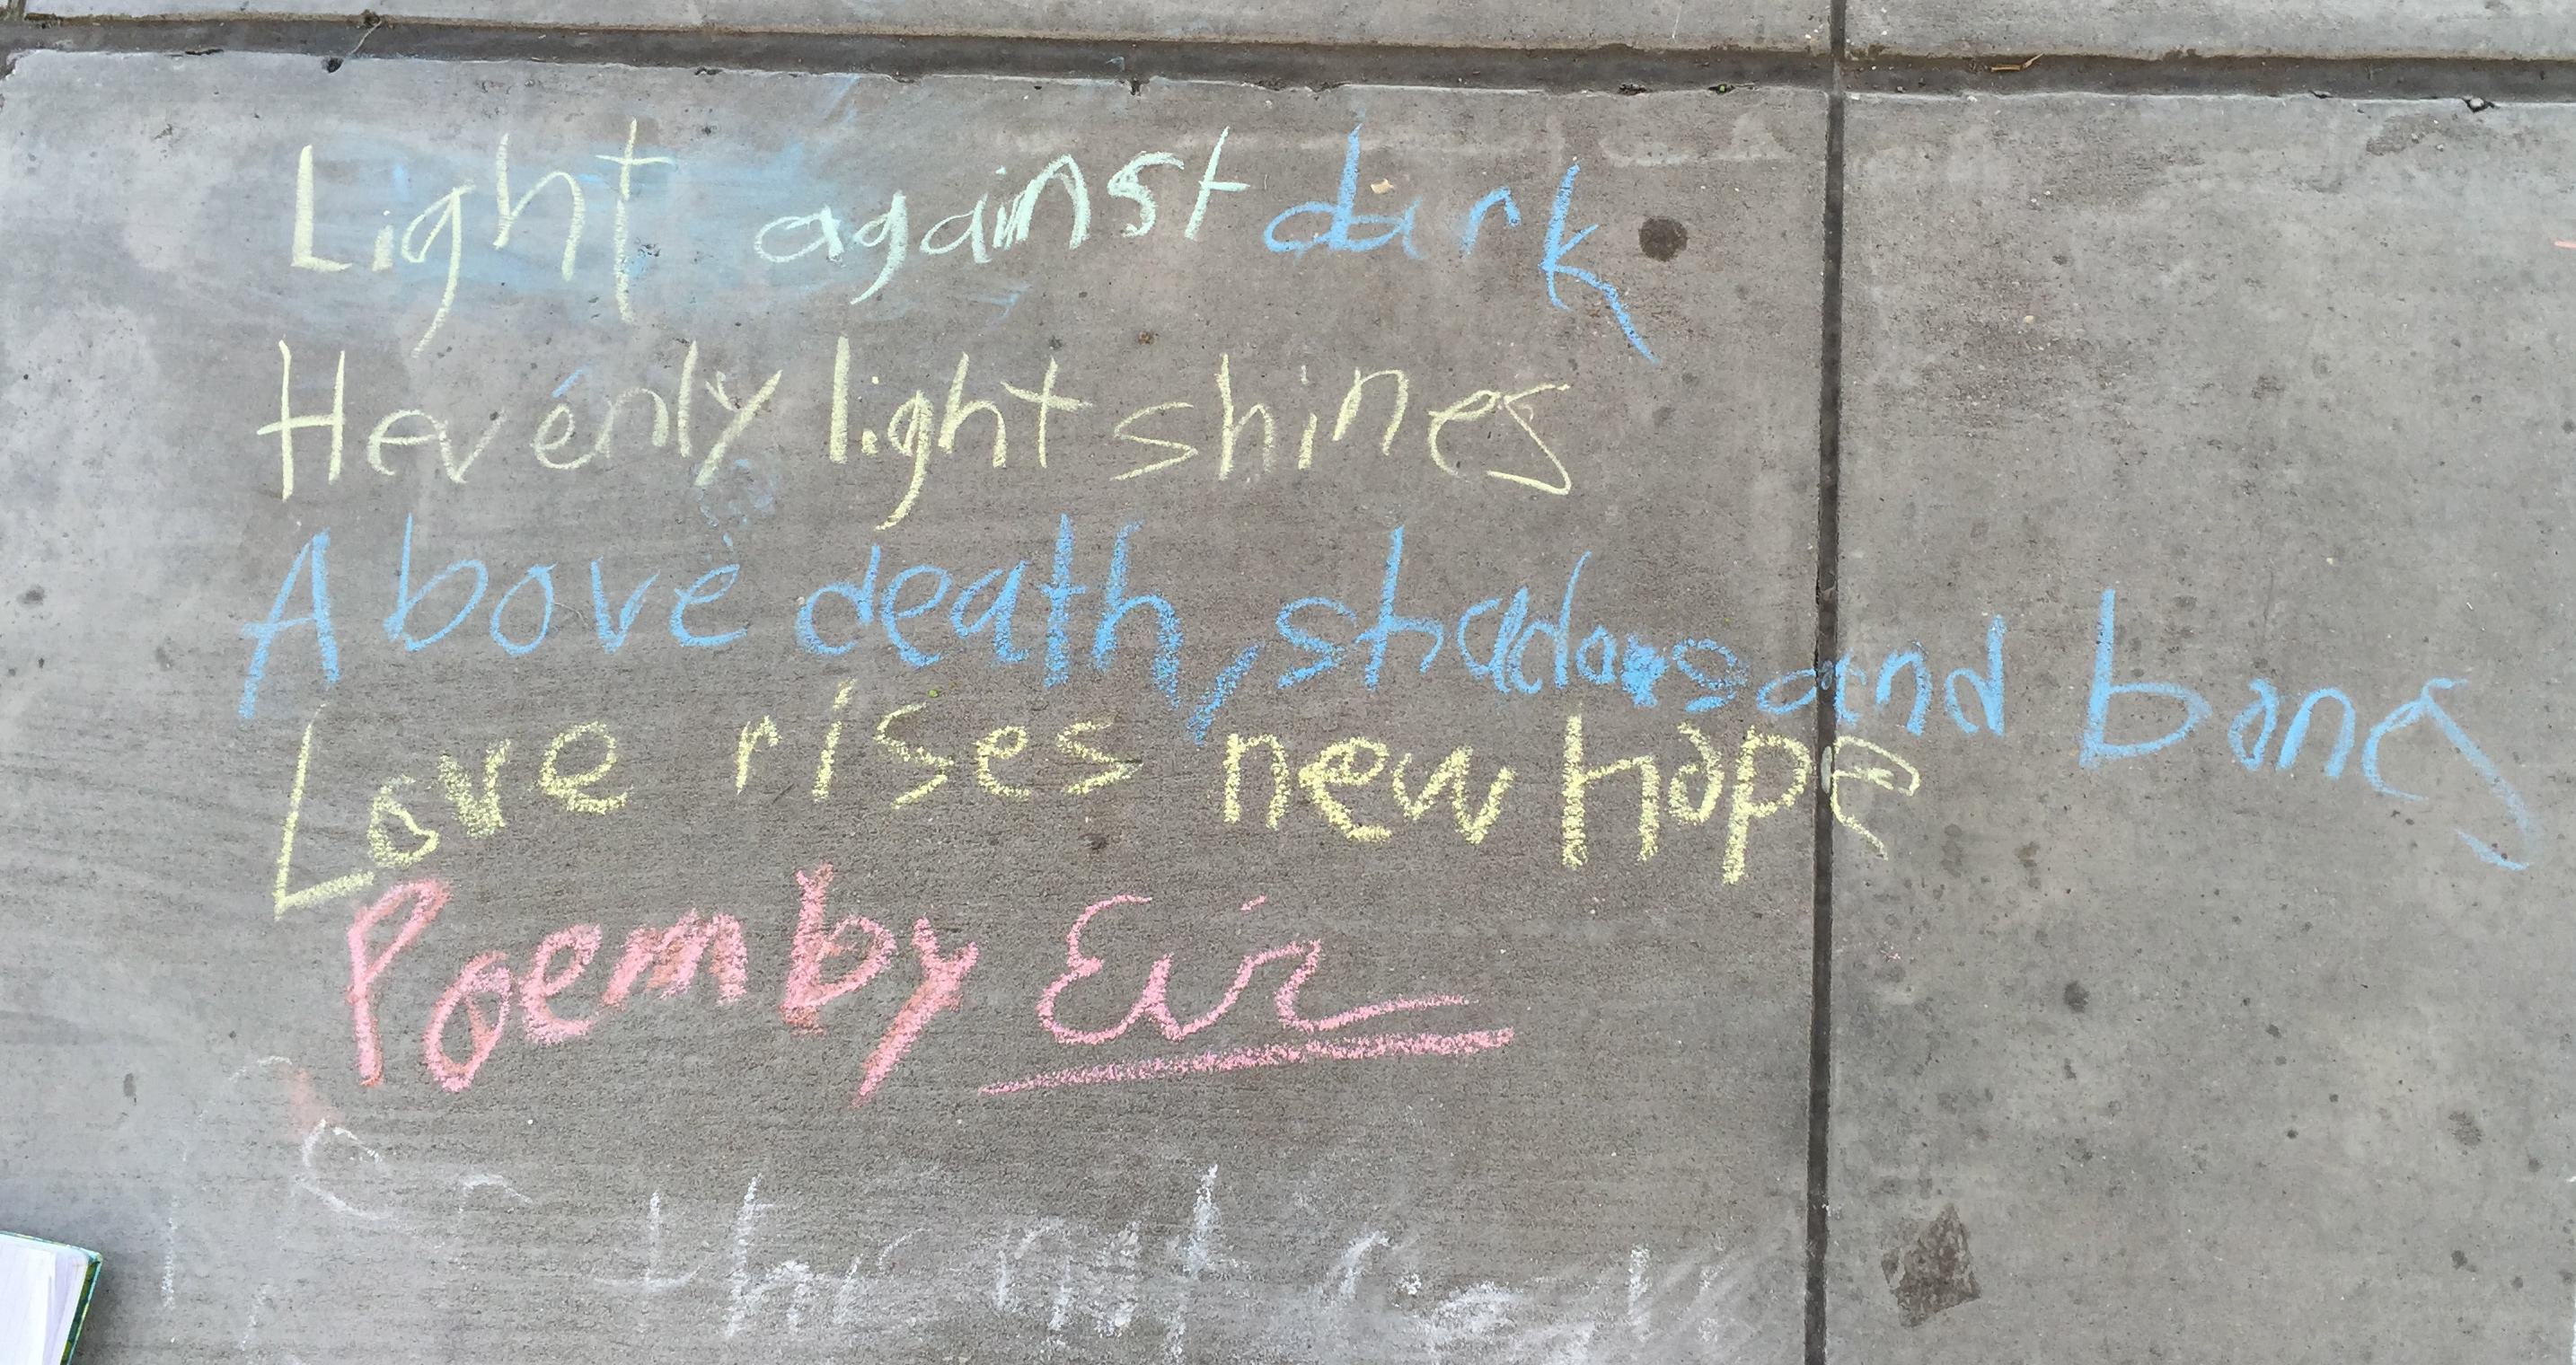 Light against dark
Hevenly light shines
Above death, shadows and bones
Love rises new hope
Poem by Eir